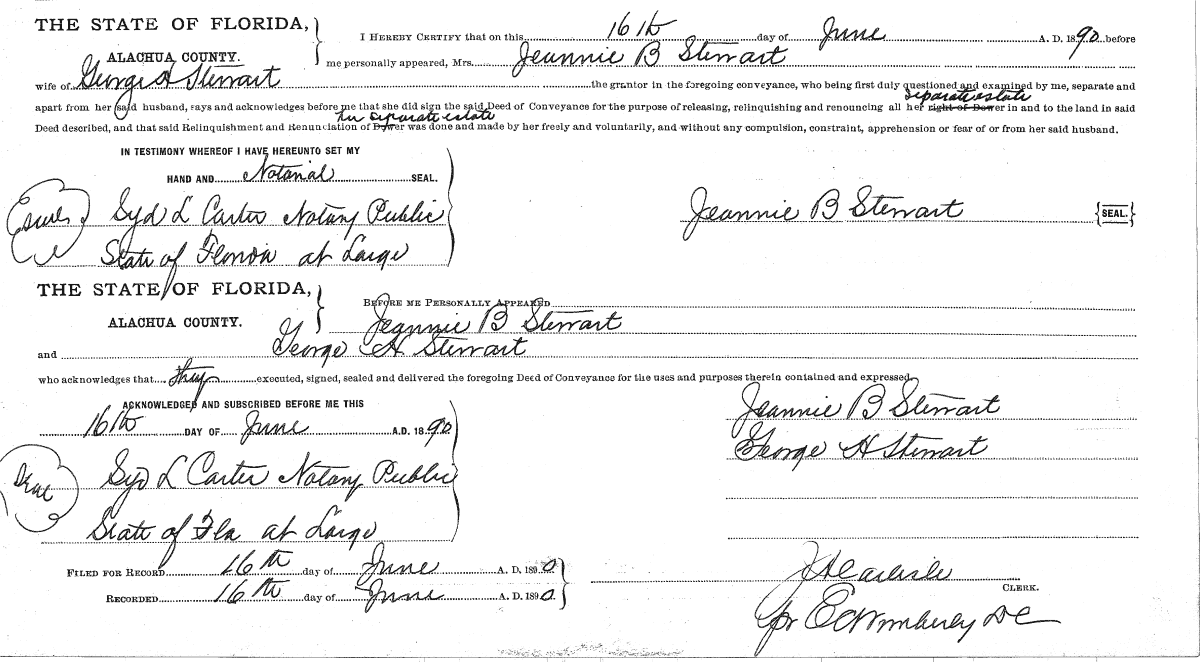 THE STATE OF FLORIDA,
ALACHUA COUNTY.
I HEREBY CERTIFY that on this 16th day of June A. D. 1890 before
me personally appeared, Mrs. Jeannie B Stewart
wife of George H Stewart the grantor in the foregoing conveyance, who being first duly questioned and examined by me, separate and
separate estate
apart from her said husband, says and acknowledges before me that she did sign the said Deed of Conveyance for the purpose of releasing, relinquishing and renouncing all her right of Dower in and to the land in said
her separate estate
Deed described, and that said Relinquishment and Renunciation of Dower was done and made by her freely and voluntarily, and without any compulsion, constraint, apprehension or fear of or from her said husband.
IN TESTIMONY WHEREOF I HAVE HEREUNTO SET MY
HAND AND Notarial SEAL.
Syd L Carter Notary Public
Jeannie B Stewart {SEAL.}
State of Florida at Large
THE STATE OF FLORIDA,
ALACHUA COUNTY.
BEFORE ME PERSONALLY APPEARED
Jeannie B Stewart
and George H Stewart
who acknowledges that they executed, signed, sealed and delivered the foregoing Deed of Conveyance for the uses and purposes therein contained and expressed.
ACKNOWLEDGED AND SUBSCRIBED BEFORE ME THIS
Jeannie B Stewart
16th DAY OF June A.D. 1890
George H Stewart
Seal
Syd L Carter Notary Public
State of Fla at Large
FILED FOR RECORD 16th day of June A. D. 1890
J H Carlisle
CLERK.
RECORDED 16th day of June A. D. 1890.
pr E C Wimberley DC